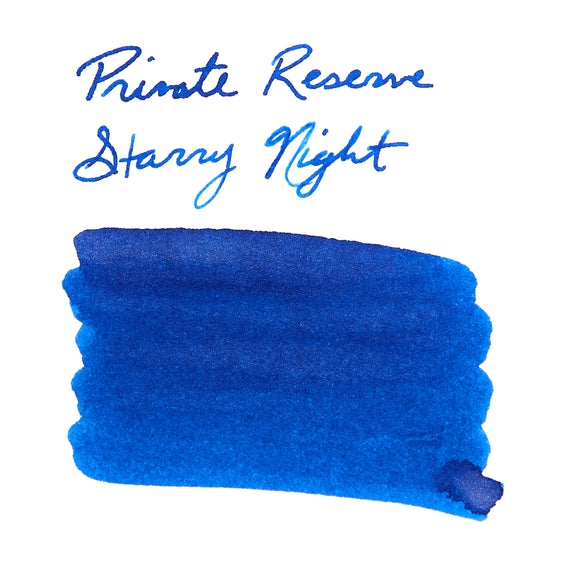 Private Reserve
Starry Night